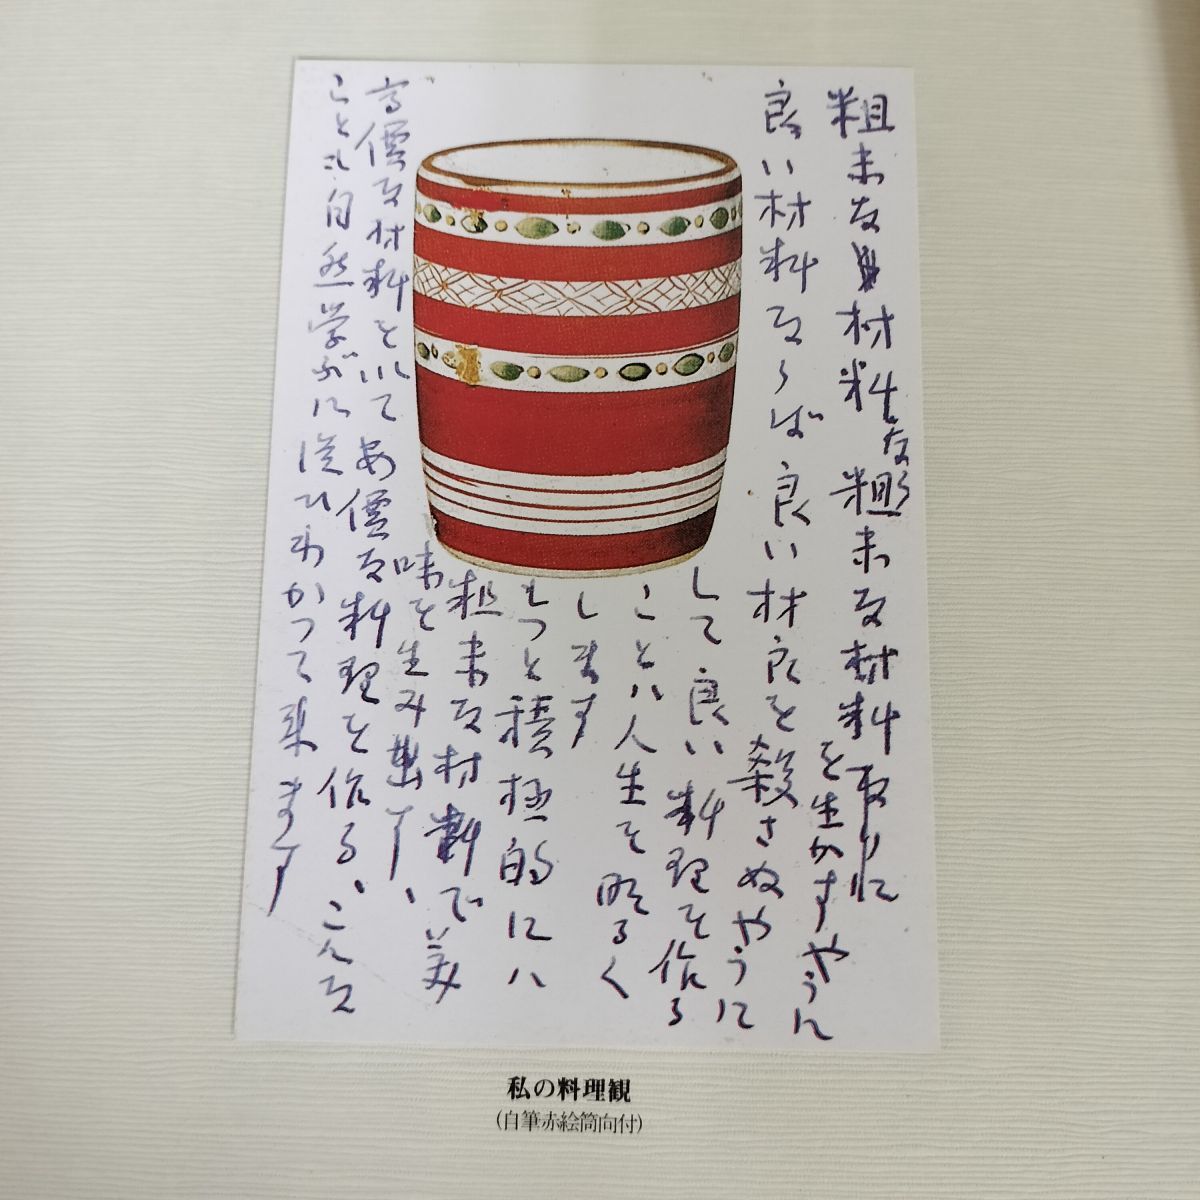 粗末な材料なら粗末な材料取りに
を生かすやうに
良い材料ならば良い材良を殺さぬやうに
して良い料理を作る
ことハ人生を明るく
します
もつと積極的にハ
粗末な材料で美
味を生み出す、
高價な材料を以て安價な料理を作る、こんな
ことも自然学ぶに従ひわかつて来ます
私の料理観
(自筆赤絵筒向付)